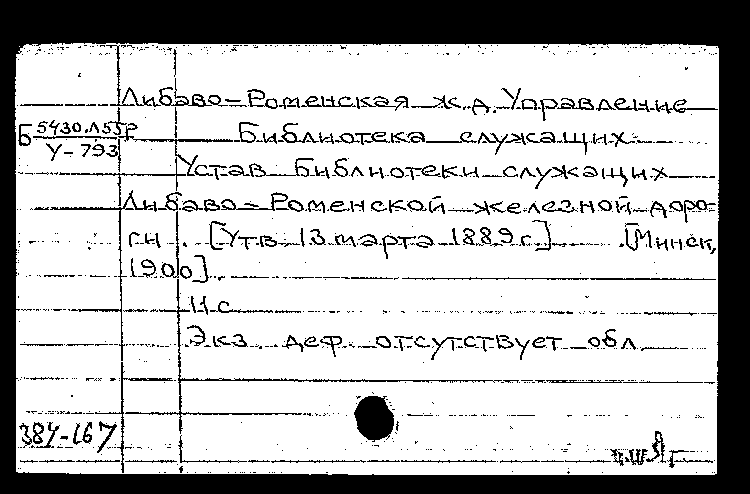 Либаво-Роменская ж.д. Управление
Б 5430.Л55Р
У-793
Библиотека служащих.
Устав библиотеки служащих
Либаво-Роменской железной доро-
ги. [Утв. 13 марта 1889 г.] [Минск,
1900].
11 с
Экз. деф. отсутствует обл.
384-167